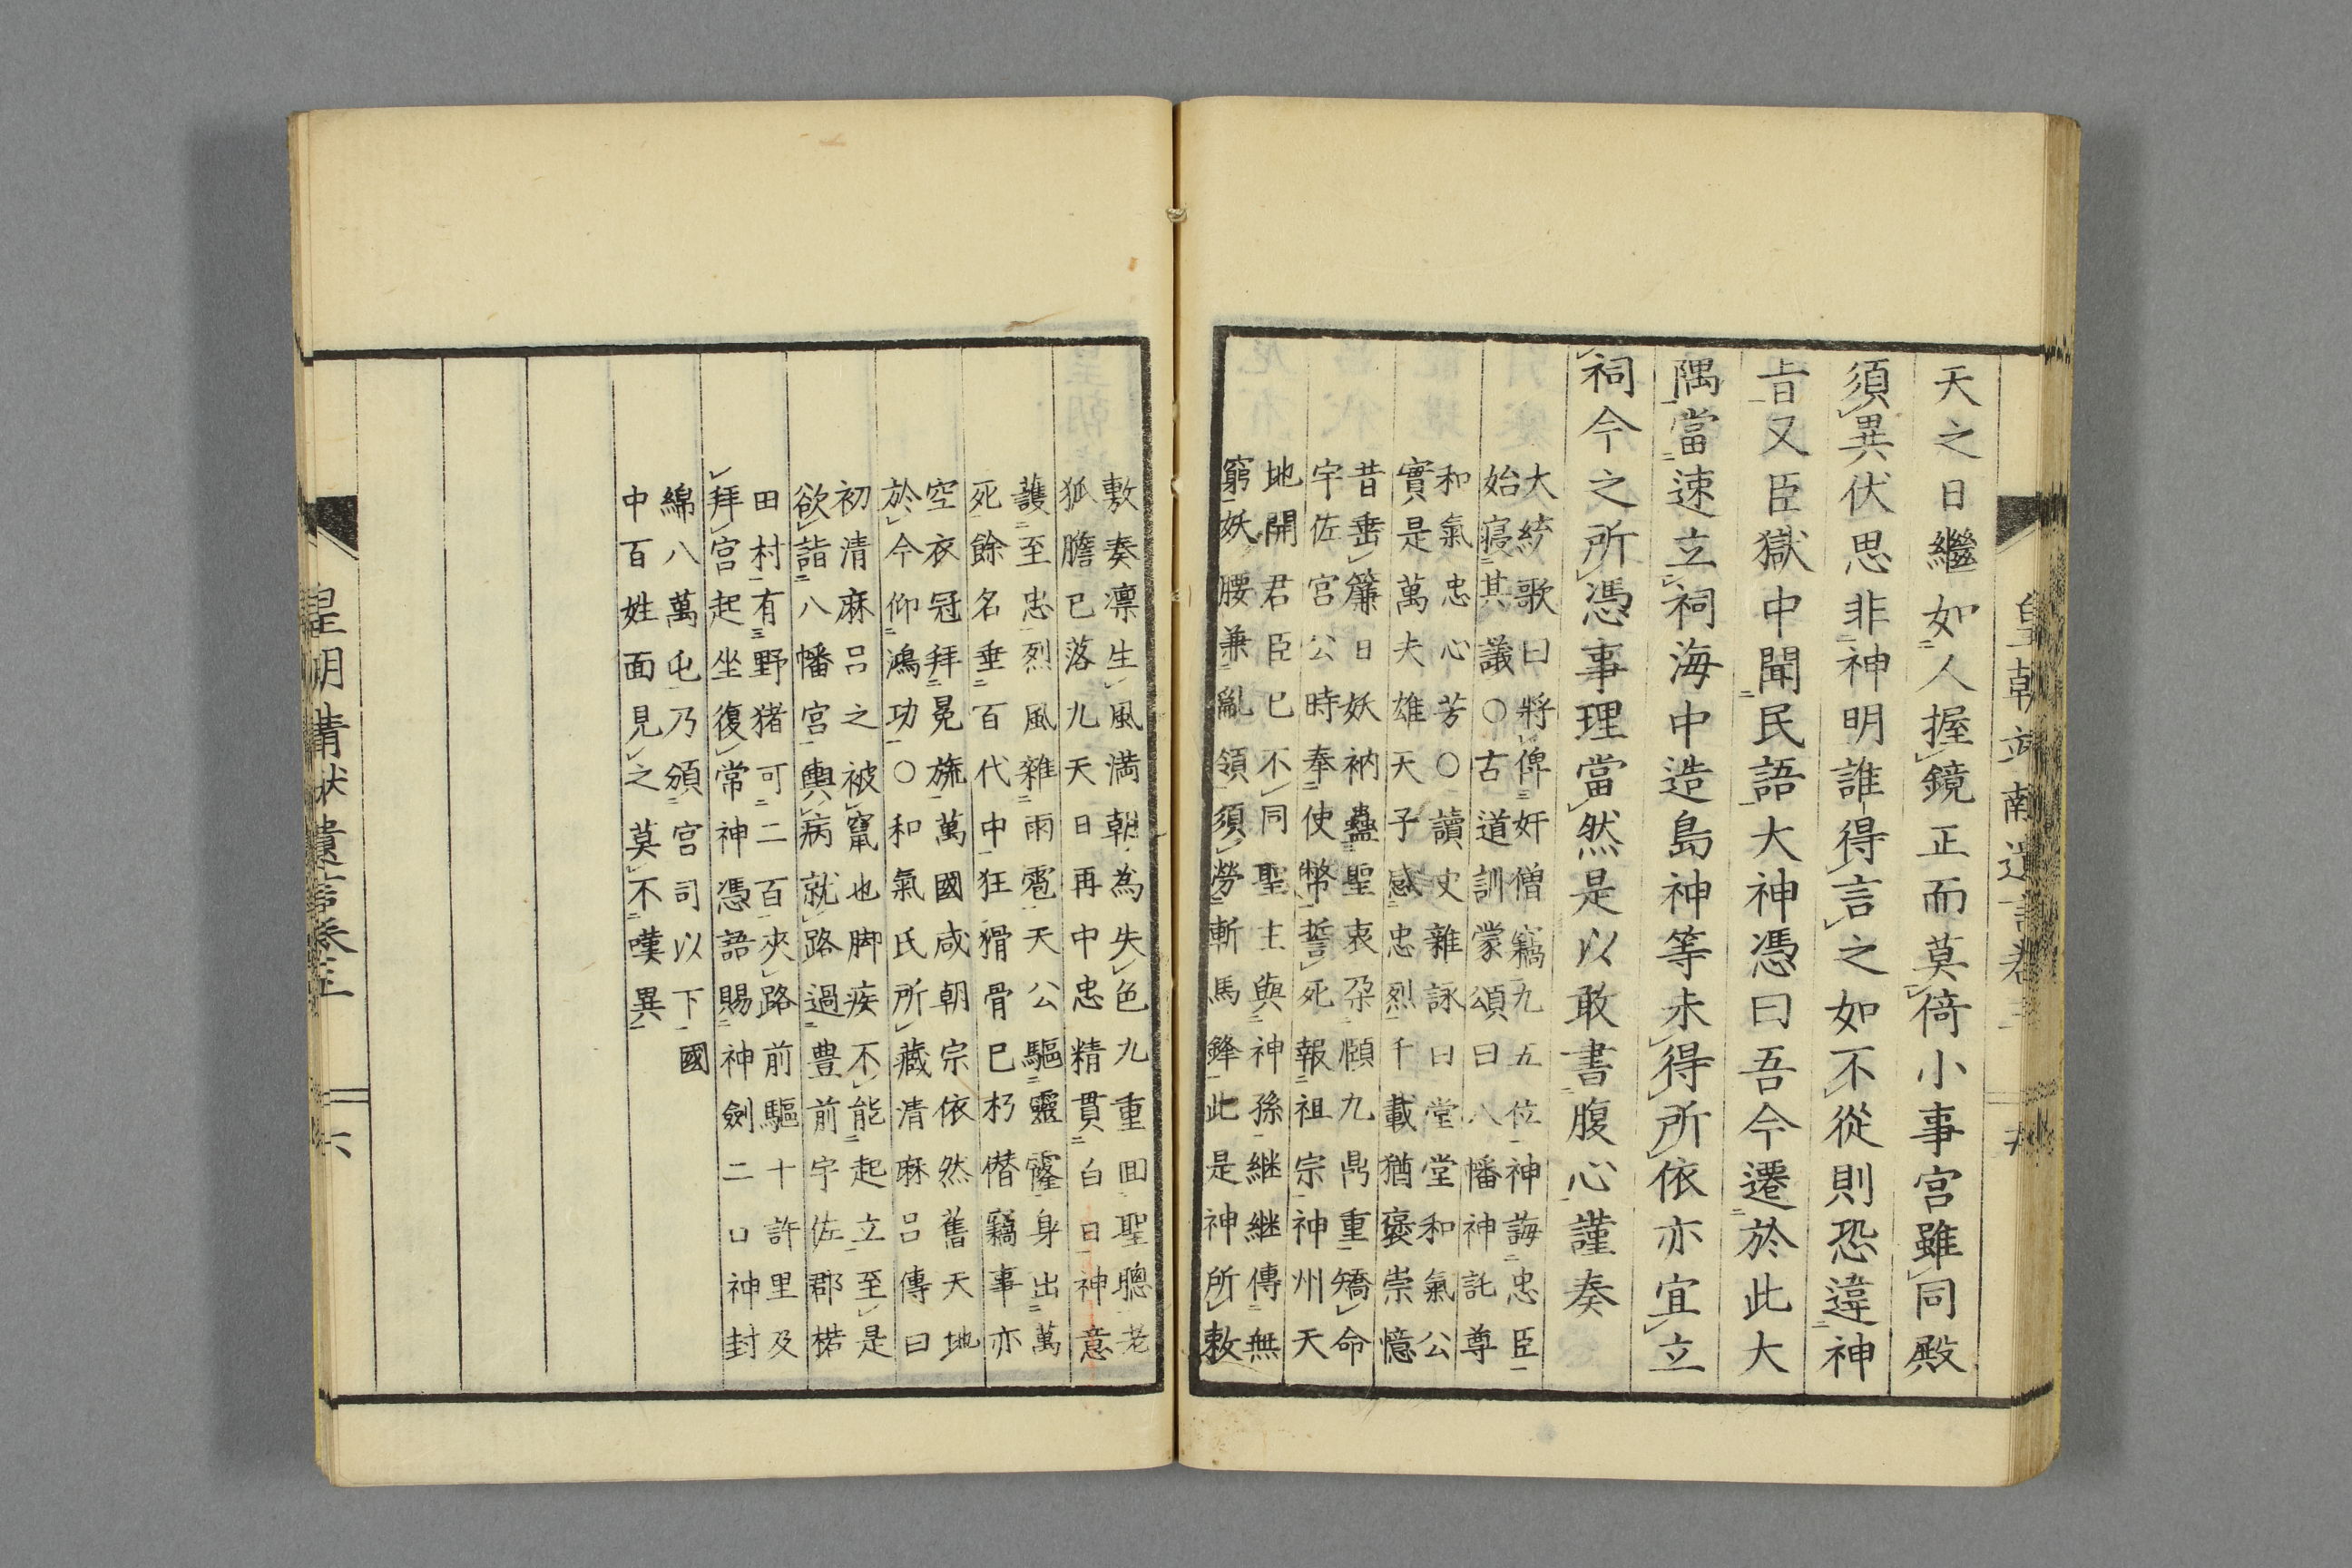 天之日繼如人握鏡正而莫倚小事宮雖同殿
須異伏思非神明誰得言之如不從則恐違神
旨又臣獄中聞民語大神憑曰吾今遷於此大
隅當速立祠海中造島神等未得所依亦宜立
祠今之所憑事理當然是以敢書腹心謹奏
大統歌曰將俾奸僧竊九五位神誨忠臣
始寢其議○古道訓蒙頌曰八幡神託尊
和氣忠心芳○讀史雜詠曰堂堂和氣公
實是萬夫雄天子感忠烈千載猶褒崇憶
昔垂簾日妖衲蠱聖衷尕願九鼎重矯命
宇佐宮公時奉使幣誓死報祖宗神州天
地開君臣已不同聖主與神孫継継傳無
窮妖腰兼亂領須勞斬馬鋒此是神所敕
敷奏凛生風満朝為失色九重回聖聰老
狐膽已落九天日再中忠精貫白日神意
護至忠烈風雜雨雹天公驅靈窿身出萬
死餘名垂百代中狂猾骨已朽僣竊事亦
空衣冠拜冕旒萬國咸朝宗依然舊天地
於今仰鴻功○和氣氏所藏清麻呂傳曰
初清麻呂之被竄也脚疾不能起立至是
欲詣八幡宮輿病就路過豊前宇佐郡楉
田村有野猪可二百夾路前驅十許里及
拜宮起坐復常神憑語賜神劍二口神封
綿八萬屯乃頒宮司以下國
中百姓面見之莫不嘆異
皇朝靖獻遺言卷三
六